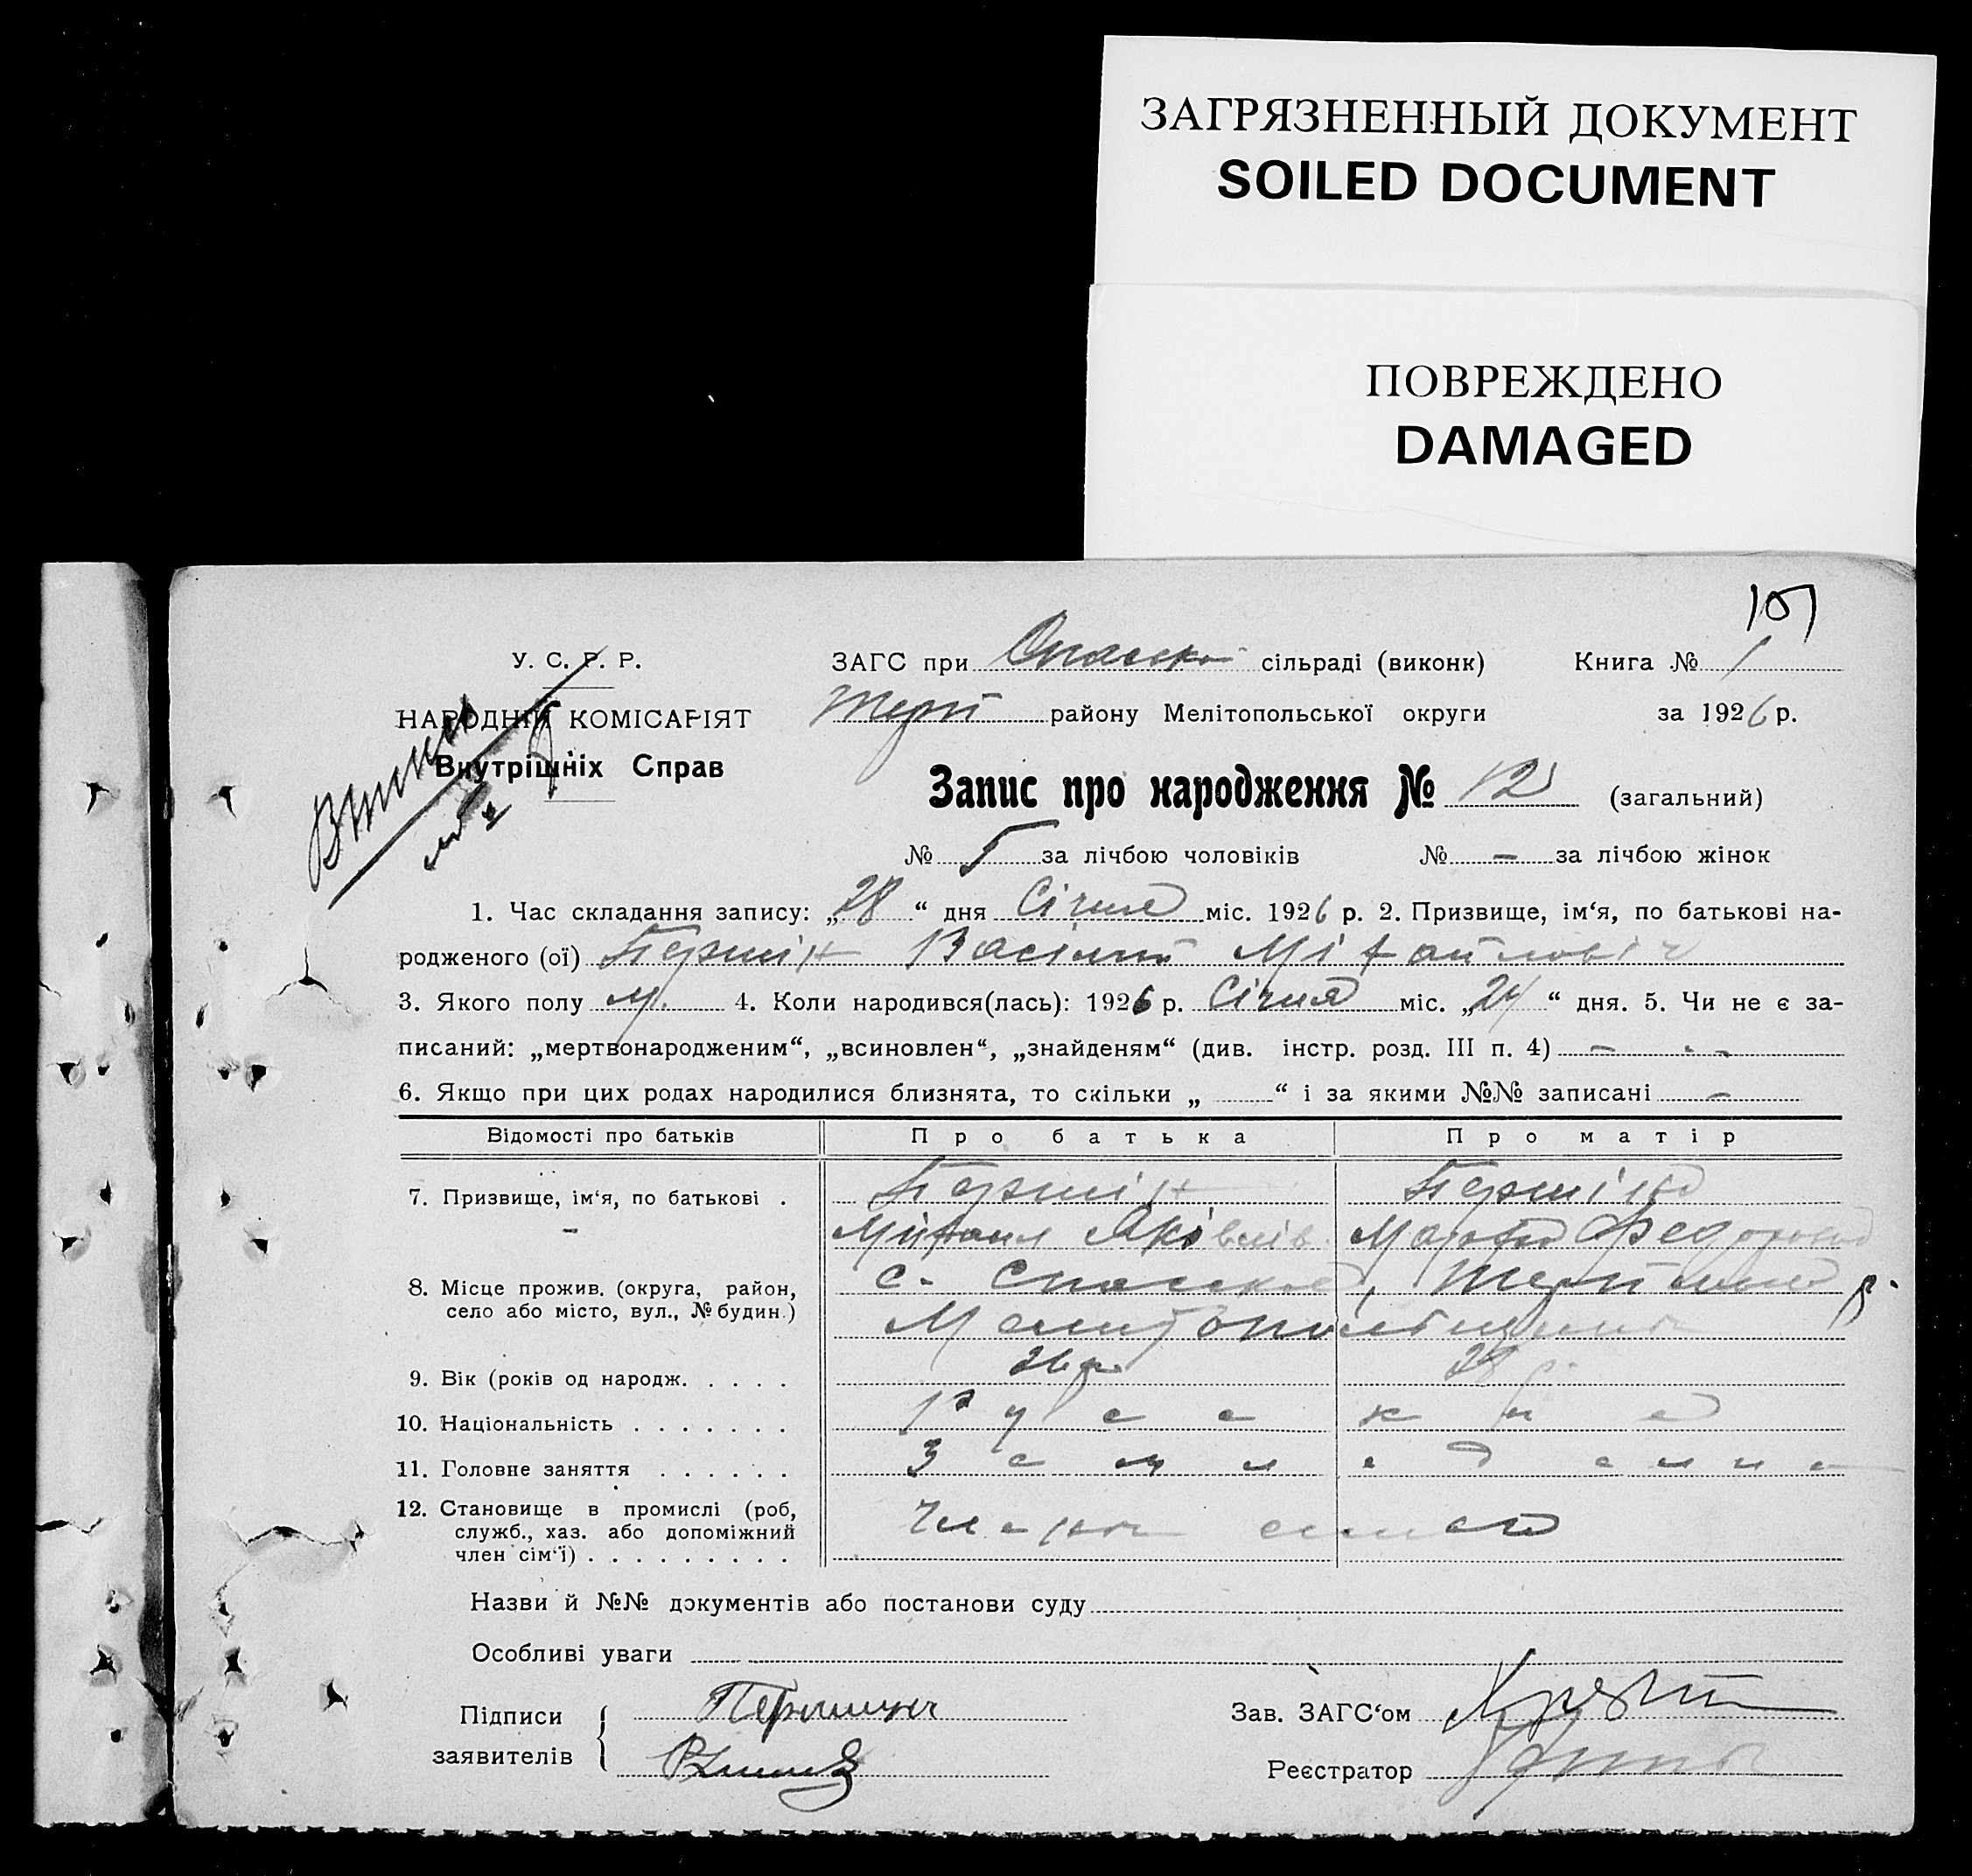 ЗАГРЯЗНЕННЫЙ ДОКУМЕНТ
SOILED DOCUMENT
ПОВРЕЖДЕНО
DAMAGED
У. С. Р. Р.
НАРОДНІЙ КОМІСАРІЯТ
Внутрішніх Справ
ЗАГС при сільраді (виконк) Книга № 1
району Мелітопольської округи за 1926 р.
Запис про народження № 12 (загальний)
№ 5 за лічбою чоловіків № – за лічбою жінок
1. Час складання запису: „28“ дня Січня міс. 1926 р. 2. Призвище, ім‘я, по батькові на-
родженого (ої) Першін Васілий Міхайловіч
3. Якого полу м. 4. Коли народився(лась): 1926 р. Січня міс. „24“ дня. 5. Чи не є за-
писаний: „мертвонародженим“, „всиновлен“, „знайденям“ (див. інстр. розд. III п. 4) – - -
6. Якщо при цих родах народилися близнята, то скільки „ “ і за якими №№ записані –
Відомості про батьків Про батька Про матір
7. Призвище, ім‘я, по батькові . Першін Першіна
Міхаил Яківлів Марфа Федоровна
8. Місце прожив. (округа, район, с. Спасское, р.
село або місто, вул., № будин.) Мелитопольщини
9. Вік (років од народж. . . . . 26 р. 28 р.
10. Національність . . . . . . . Русские
11. Головне заняття . . . . . . Земледелие
12. Становище в промислі (роб,
служб., хаз. або допоміжний Член семьи
член сім‘ї) . . . . . . . . .
Назви й №№ документів або постанови суду
Особливі уваги
Підписи Зав. ЗАГС‘ом
заявителів
Реєстратор